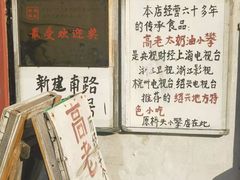 最受欢迎奖
新建南路
高老
本店经营六十多年
的传承食品
高老太奶油小攀
是央视财经上海电视台
浙江卫视 浙江影视
杭州电视台 绍兴电视台
推荐的绍兴地方特
色小吃
原桥头小攀店在此